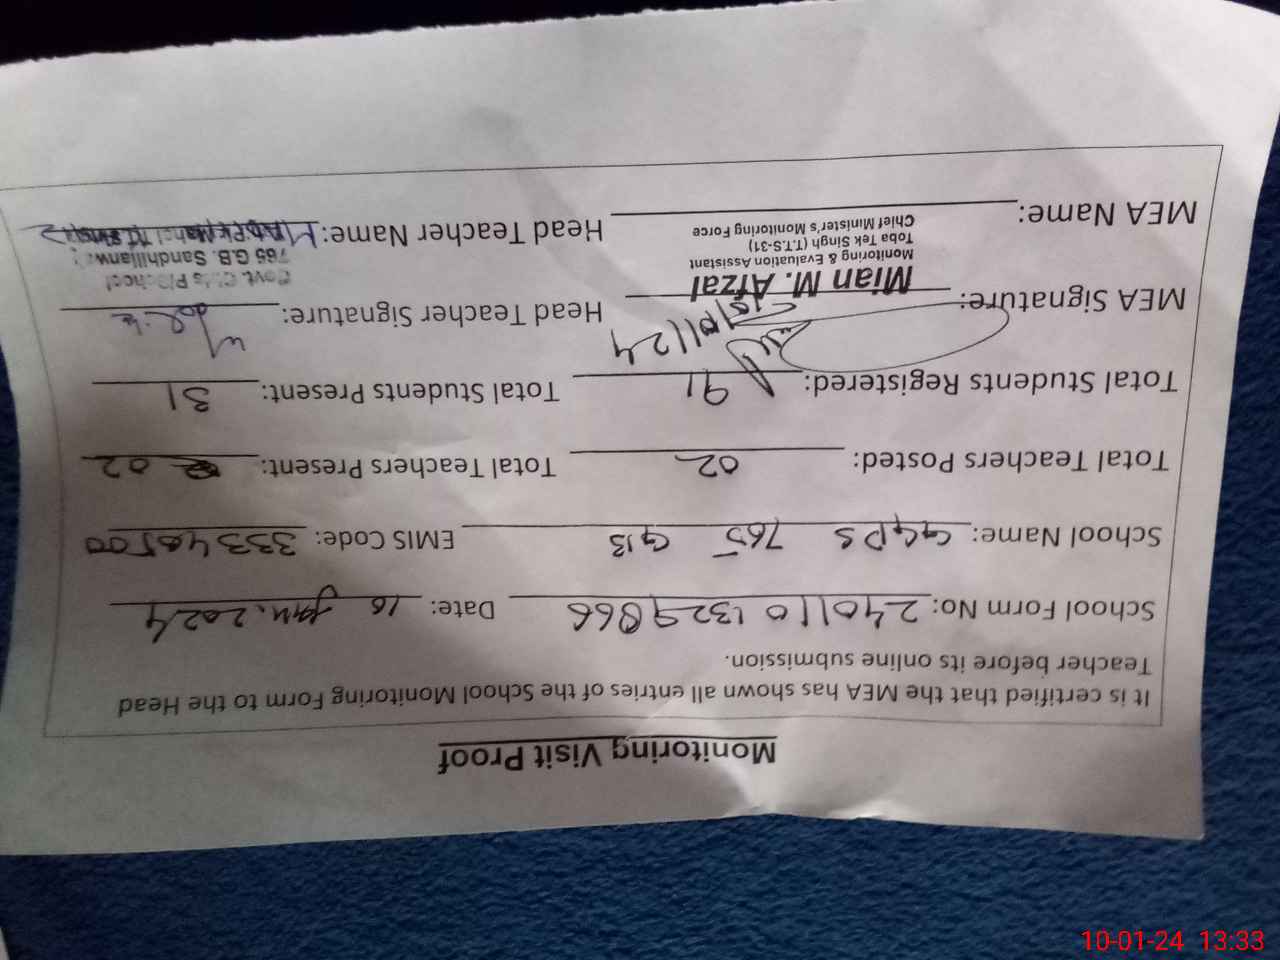 Monitoring Visit Proof
It is certified that the MEA has shown all entries of the School Monitoring Form to the Head
Teacher before its online submission.
School Form No: 2401101329866 Date: 10 Jan. 2024
School Name: GGPS 765 GB EMIS Code: 33340500
Total Teachers Posted: 02 Total Teachers Present: 02
Total Students Registered: 91 Total Students Present: 31
MEA Signature: 10/01/24 Head Teacher Signature:
Mian M. Afzal
Monitoring & Evaluation Assistant
Toba Tek Singh (T.T.S-31)
Chief Minister's Monitoring Force
Govt. School
765 G.B. Sandhilianwali
MEA Name: Head Teacher Name:
10-01-24 13:33